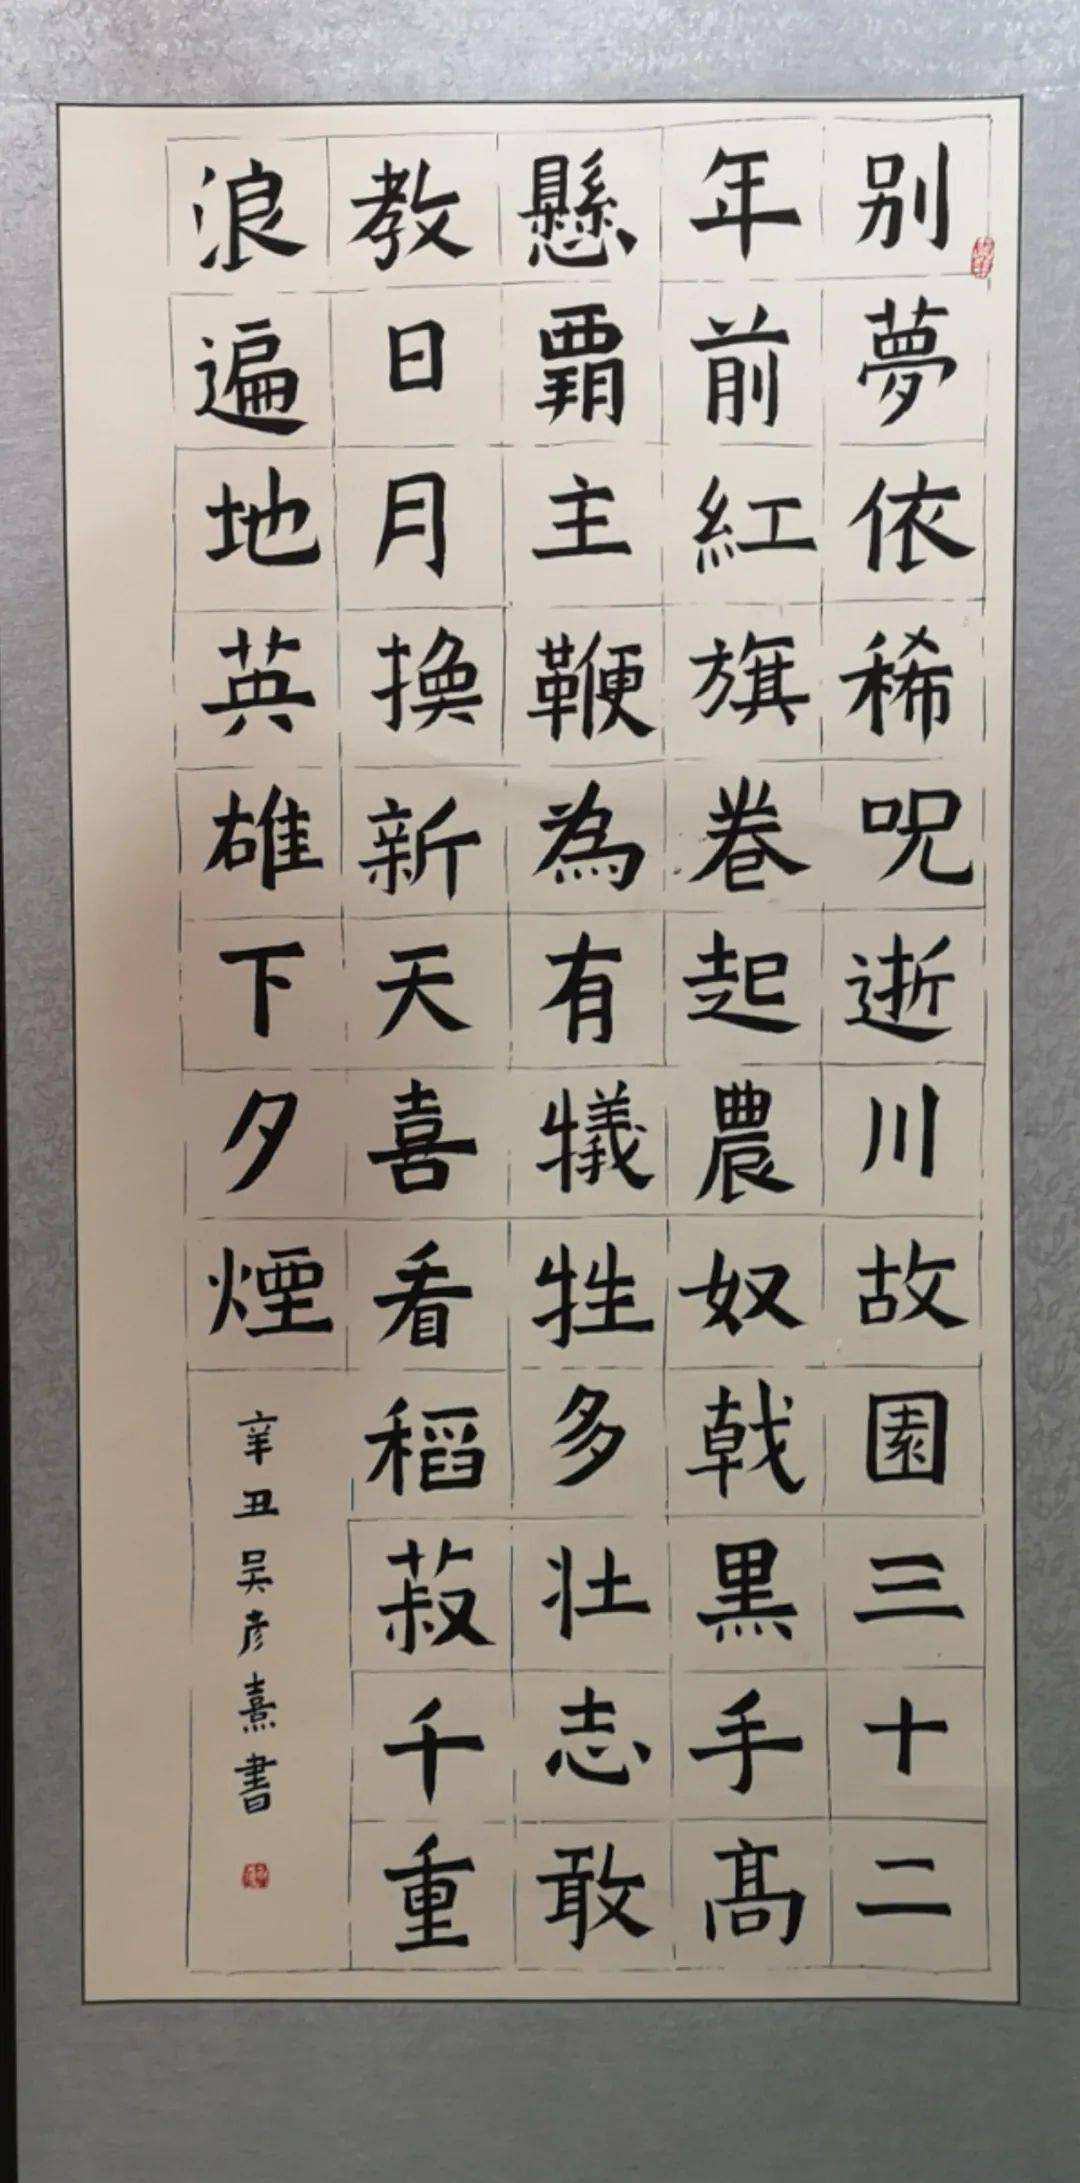 别夢依稀呪逝川故園三十二
年前紅旗卷起農奴戟黑手高
懸覇主鞭為有犠牲多壮志敢
教日月換新天喜看稻菽千重
浪遍地英雄下夕煙
辛丑吴彦熹書